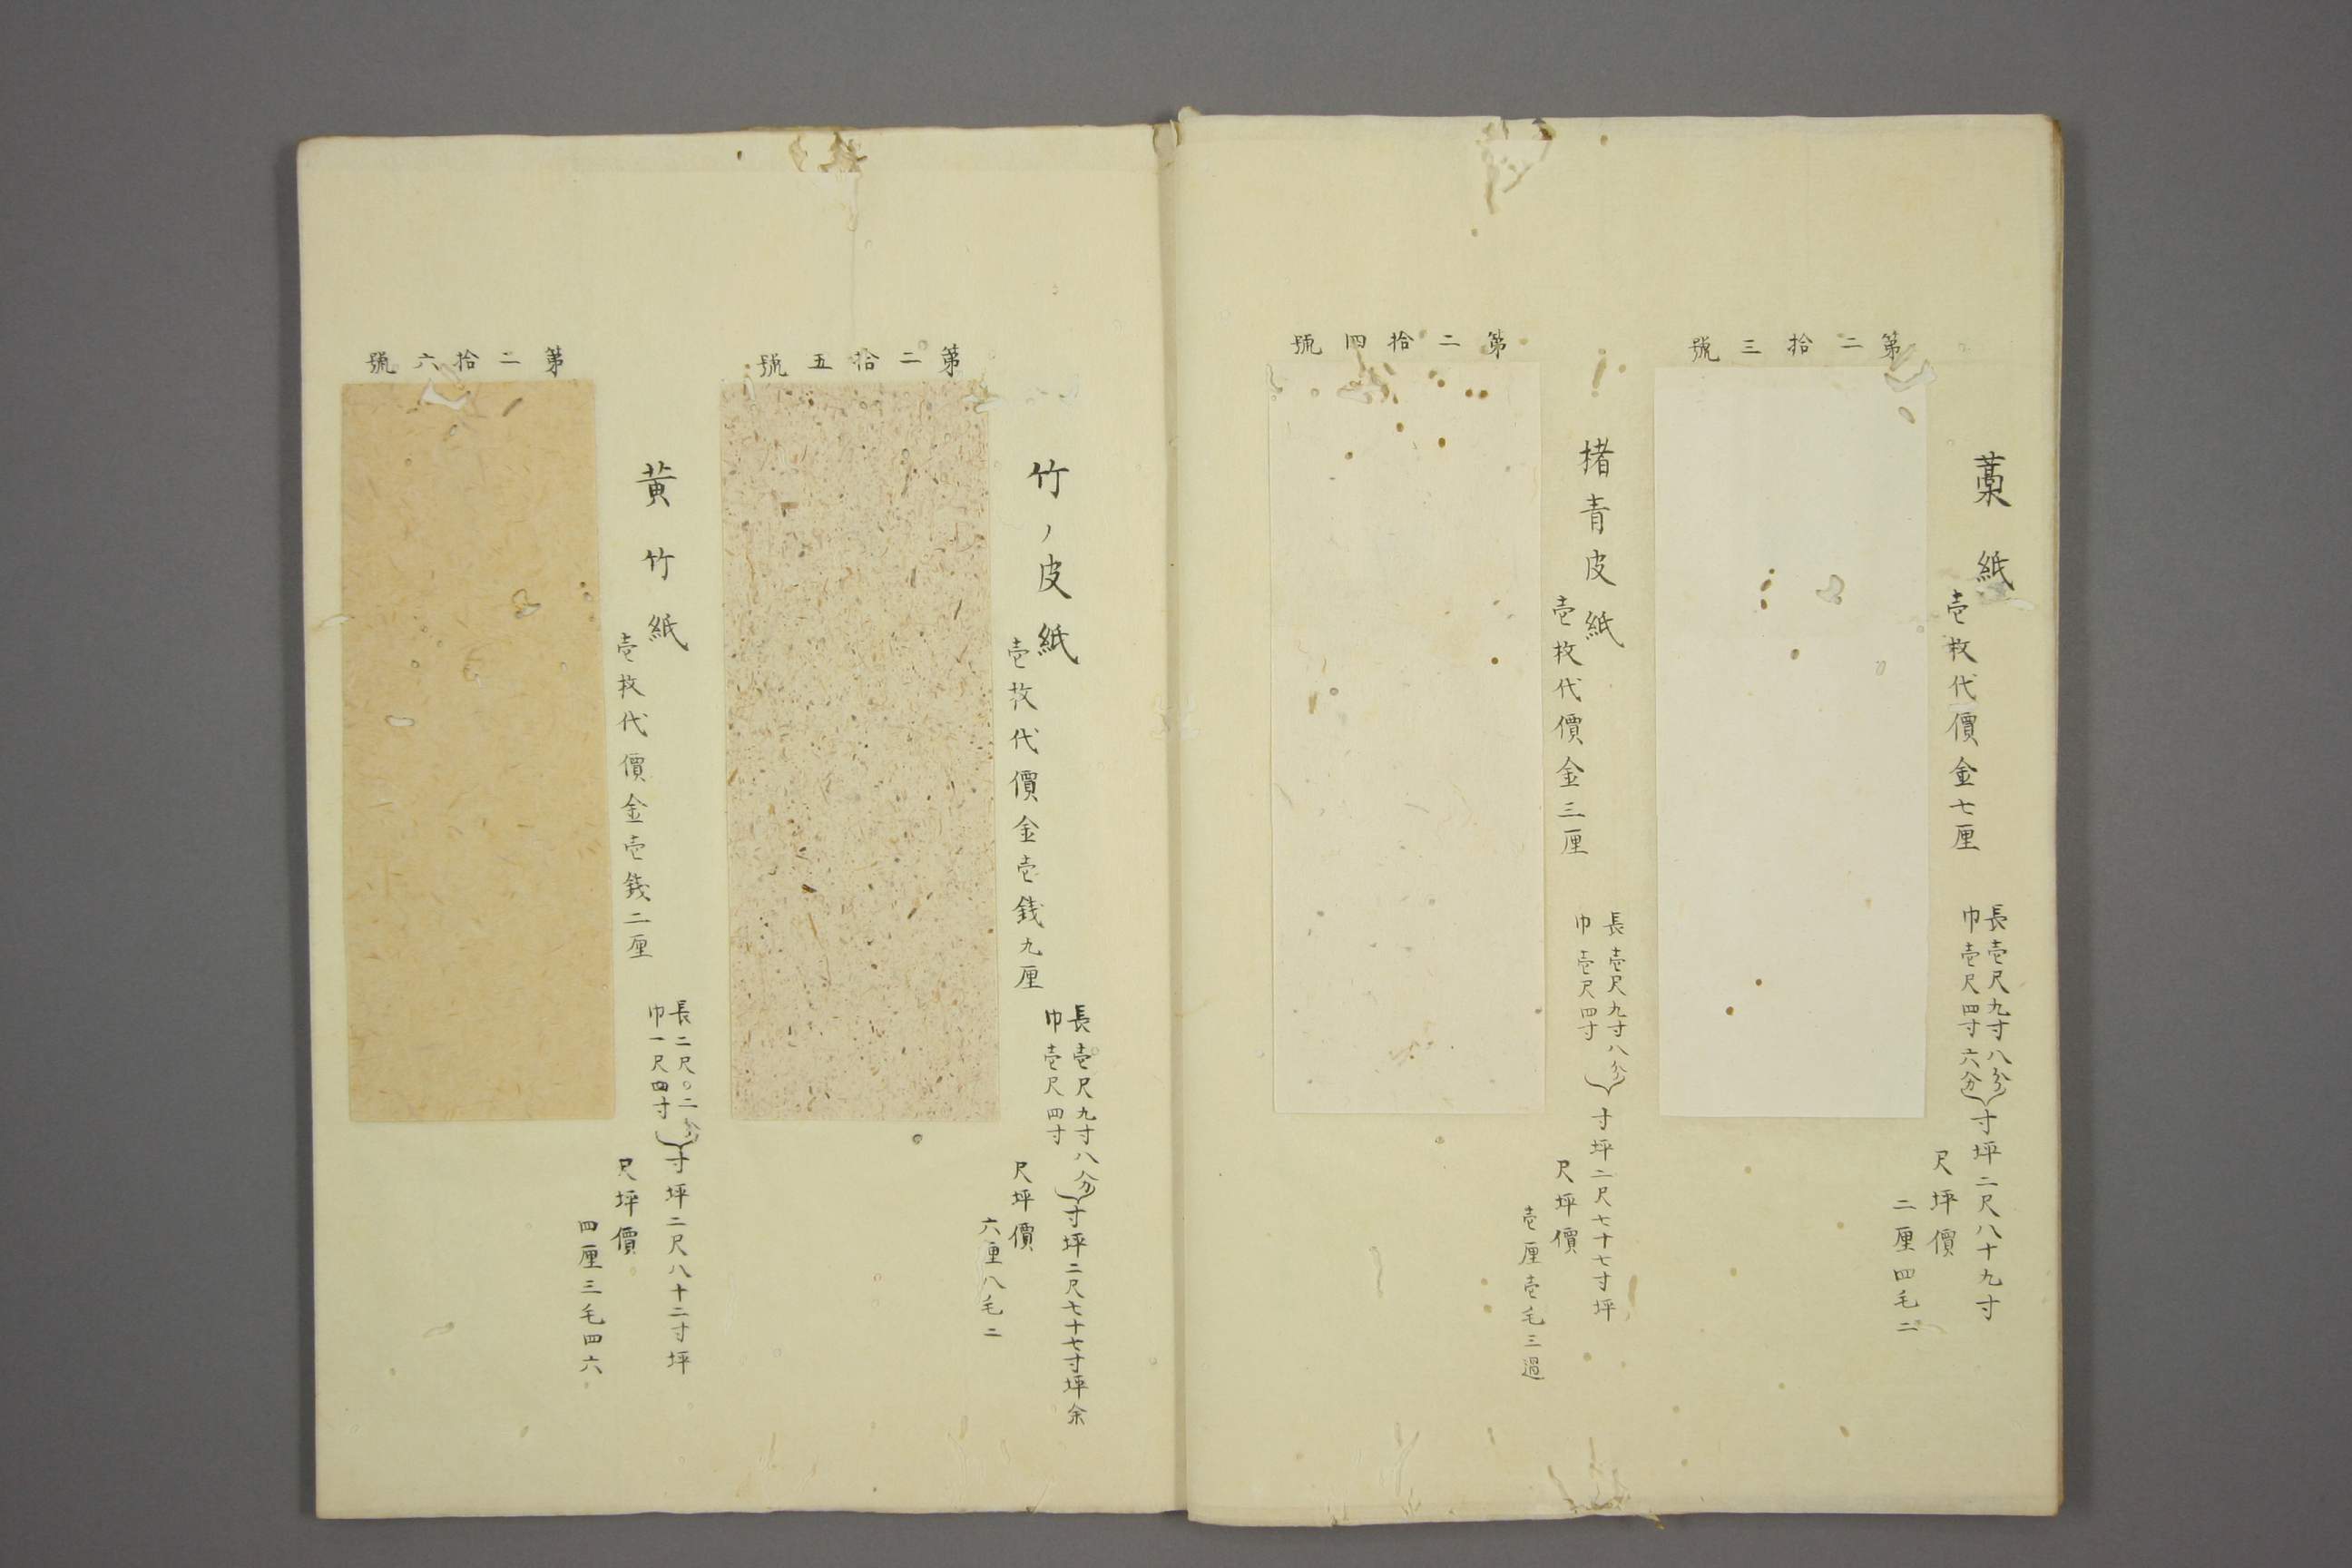 第二拾三號
藁紙
壱枚代價金七厘
長壱尺九寸八分
巾壱尺四寸六分
寸坪二尺八十九寸
尺坪價
二厘四毛二
第二拾四號
楮青皮紙
壱枚代價金三厘
長壱尺九寸八分
巾壱尺四寸
寸坪二尺七十七寸坪
尺坪價
壱厘壱毛三過
第二拾五號
竹ノ皮紙
壱枚代價金壱銭九厘
長壱尺九寸八分
巾壱尺四寸
寸坪二尺七十七寸坪余
尺坪價
六厘八毛二
第二拾六號
黄竹紙
壱枚代價金壱銭二厘
長二尺〇二分
巾一尺四寸
寸坪二尺八十二寸坪
尺坪價
四厘三毛四六